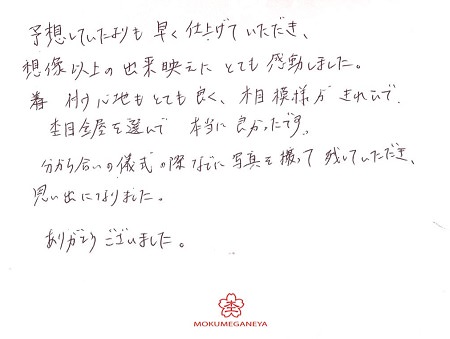 予想していたよりも 早く仕上げていただき、
想像以上の出来映えに とても 感動しました。
着け心地もとても良く、木目模様がきれいで、
杢目金屋を選んで 本当に良かったです。
分かち合いの儀式の際などに写真を撮って残していただき、
思い出になりました。
ありがとうございました。
MOKUMEGANEYA